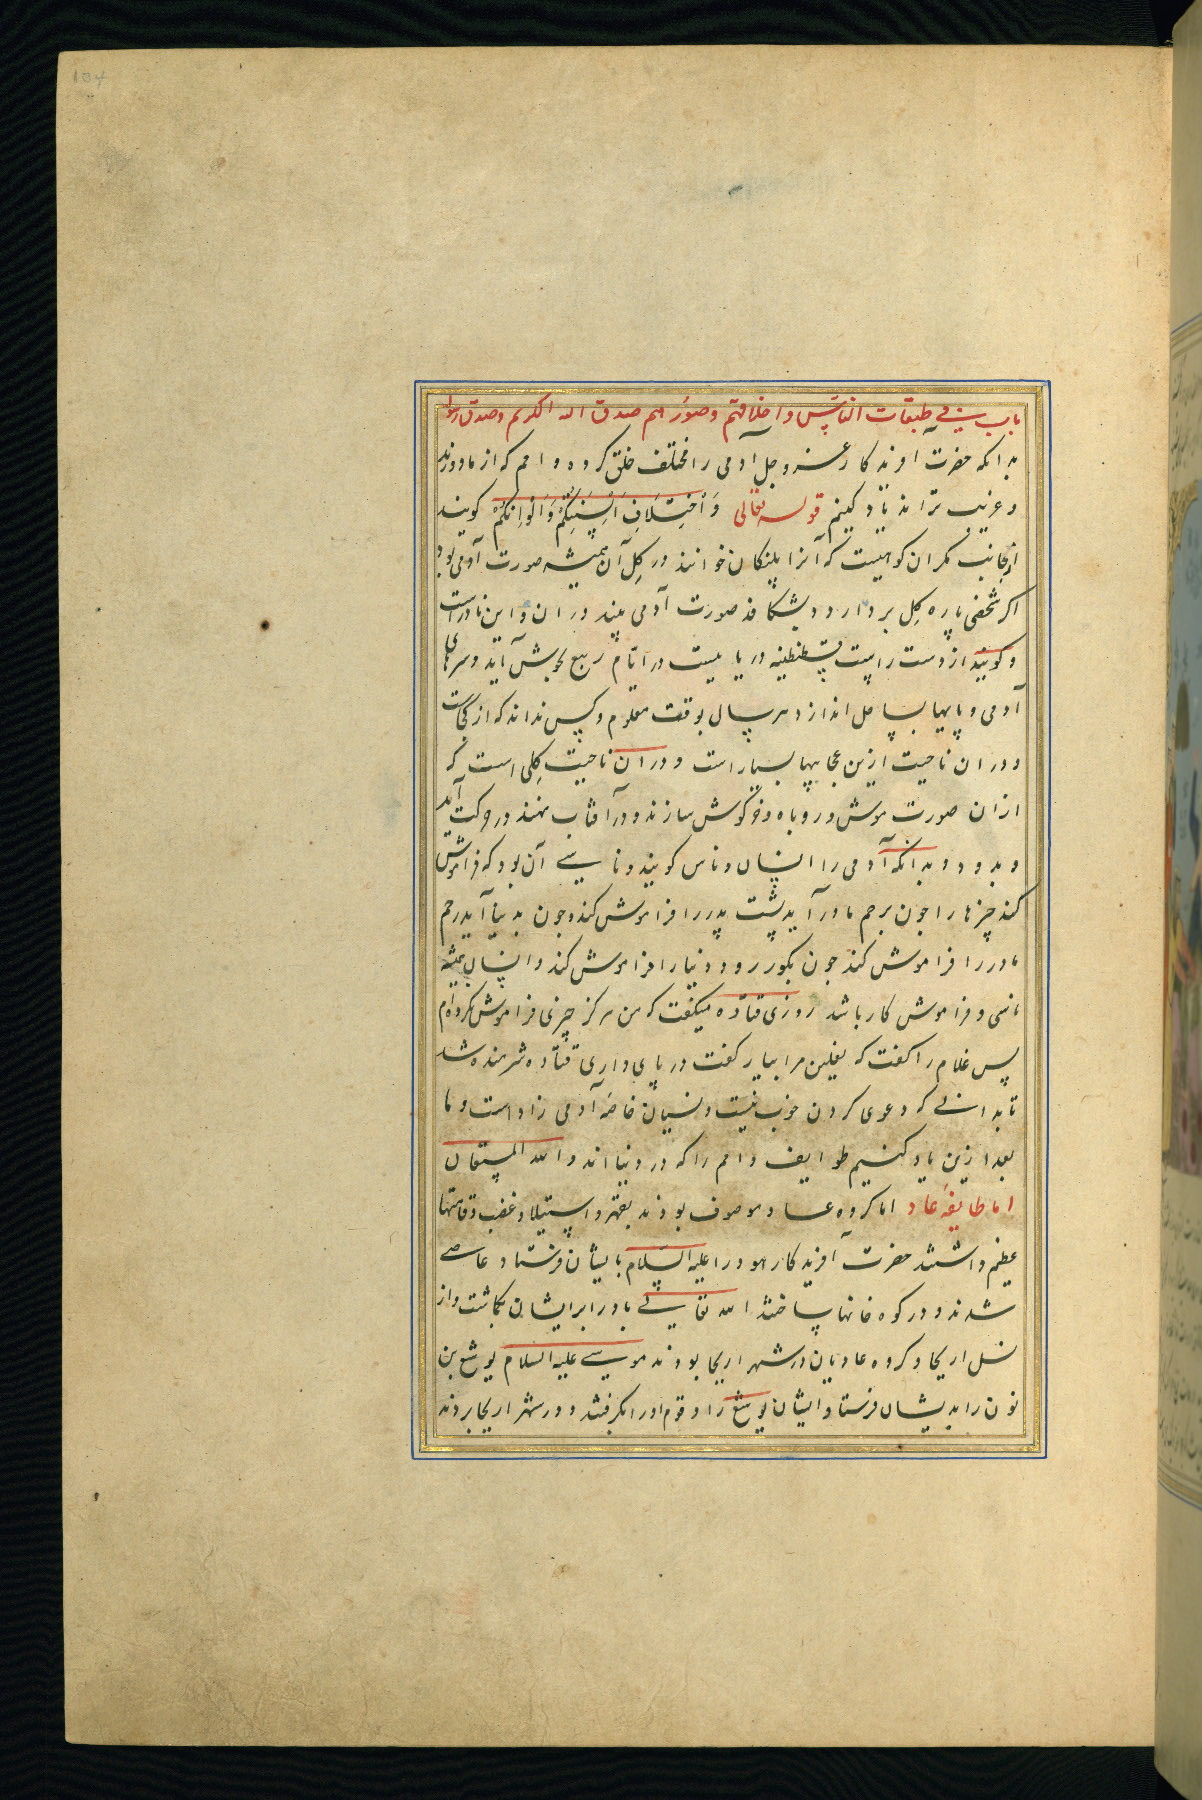 104
باب فی طبقات الناس و اخلاقهم و صورهم صدق الله الکریم و صدق رسوله
بدانکه حضرت آفریدکار عز و جل آدمی را مختلف خلق کرده و امم که از ما دورند
و غریب تراند یاد کنیم قوله تعالی وَاخْتِلَافِ أَلْسِنَتِكُمْ وَأَلْوَانِكُمْ کویند
ازجانب مکران کوهیست که آنرا پلنکان خوانند در کِل آن همیشه صورت آدمی بود
اکر شخصی پاره کِل بردارد و بشکافد صورت آدمی بیند در ان و این نادر است
و کویند از دست راست قسطنطنیه دریاییست در ایام ربیع بجوش آید و سرهای
آدمی و پایها بساحل اندازد هر سال بوقت معلوم و کس نداند که از کجاست
و در ان ناحیت ازین عجایبها بسیار است و در ان ناحیت کِلی است که
از ان صورت موش و روباه و خرکوش سازند و در آفتاب نهند در حرکت آید
و بدود و بدانکه آدمی را انسان و ناس کویند و ناسی آن بود که فراموش
کند چیزها را جون برحم مادر آید پشت پدر را فراموش کند و جون بدنیا آید رحم
مادر را فراموش کند جون بکور رود دنیا را فراموش کند و انسان همیشه
ناسی و فراموش کار باشد روزی قتاده میکفت که من هرکز چیزی فراموش نکرده‌ام
پس غلام را کفت که نعلین مرا بیار کفت در پای داری قتاده شرمنده شد
تا بدانی که دعوی کردن خوب نیست و نسیان خاصه آدمی زاد است و ما
بعد ازین یاد کنیم طوایف و امم را که در دنیااند والله المستعان
اما طایفه عاد اما کروه عاد موصوف بودند بقهر و استیلا و غضب و قامتها
عظیم داشتند حضرت آفریدکار هود را علیه السلام بایشان فرستاد عاصی
شدند و در کوه خانها ساختند الله تعالی باد را برایشان بکماشت و از
نسل اریحا و کروه عادیان در شهر اریحا بودند موسی علیه السلام یوشع بن
نون را بدیشان فرستاد ایشان یوشع را و قوم اورا بکرفتند و در شهر اریحا بردند